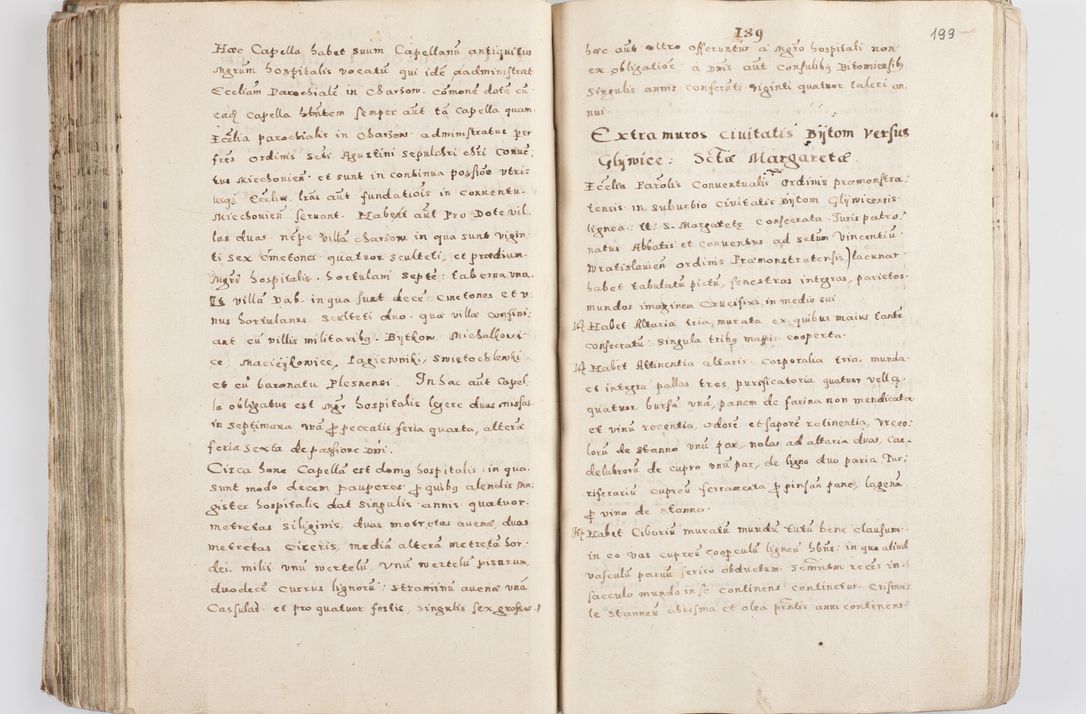 Hæc Capella habet suum Capellanũ antiquitus
Mgrum hospitalis vocatũ qui idẽ administrat
Eccliam Parochialẽ in Charzow. Cõmonẽ dotẽ cũ
eadẽ Capella hñtem semper aut tã Capella quam
Ecclia parochialis in Charzow administratur per
frẽs Ordinis Scti Agustini Sepulchri chri Convẽ:
tus Miechovieñ. et sunt in continua possiõe utris
usqȝ Eccliæ. lrãs aũt fundatiõis in Conventu
Miechovieñ servant. Habent aũt Pro Dote vil
las duas nẽpe villã Charzow in qua sunt vigin
ti sex cmetones quatuor sculteti, et prædium
Mgri hospitalis. hortulani septẽ: taberna una.
villã Dab. in qua sunt decẽ cmetones et u
nus hortulanus sculteti duo. quæ villæ confini:
ant cũ villis militaribȝ. Bytkow Michalkowi
ce, Macieykowice, Lagiewniki, Swietochlowki
et cũ baronatu Plesnensi. In hac aũt Capel
la obligatus est Mgr hospitalis legere duas missas
in septimana unã ꝓ peccatis feria quarta, alterã
feria sexta de passione Dñi.
Circa hanc Capellã est domȝ hospitalis in qua
sunt modo decem pauperes ꝓ quibȝ alendis Ma:
gister hospitalis dat singulis annis quatuor
metretas siliginis, duas metretas avenæ, duas
metretas ciceris, mediã alterã metretã hor
dei, milii unũ wertelũ. Unũ wertelũ pisarum,
duodecẽ currus lignorũ: straminũ avenæ unã
Cassulat. et pro quatuor festis, singulis sex grossos.
189
199
hæc aũt ultro offeruntur à Mgrõ hospitali non
ex obligatiõe. à Dñis aũt Consulibȝ Bitomiensibȝ
singulis annis conferũtr viginti quatuor taleri an
nui.
Extra muros civitatis Bytom versus
Glywice: Sctæ Margaretæ
Ecclia Parolis Conventualis Ordinis præmonstra:
tensis in suburbio Civitatis Bytom Glywicensis
lignea: tt: S. Margaretę consecrata. Juris patro:
natus Abbatis et conventus ad sctum Vincentiũ
Wratislavieñ Ordinis Præmonstratensis) lacunar
habet tabulatũ pictũ, fenestras integras, parietes
mundos imaginem Crucifixi in medio sui
It̃ Habet Altaria tria murata ex quibus maius tantũ
consecratũ: singula tribȝ mappis cooperta.
It̃ Habet Attinentia altaris. Corporalia tria, munda
et integra pallas tres, purificatoria quatuor vella
quatuor bursã unã, panem de farina non mendicata
et vinũ recentia, odorẽ et saporẽ retinentia, urceo:
lorũ de stanno unũ par, nolas ad altaria duas, Can
delabrorũ de cupro unũ par, de ligno duo paria Tur:
riferariũ cupreũ ferramenta ꝓ pinsañ pane, lagenã
ꝓ vino de stanno.
It̃ Habet Ciboriũ muratũ mundũ tutũ bene clausum
in eo vas cupreũ coopculũ ligneũ hñs. in quo aliud
vasculũ parvũ serico obductum. Scmũ recẽs in
sacculo mundo in se continens continetur. Crisma:
le stanneũ chrisma et olea pñtis anni continens